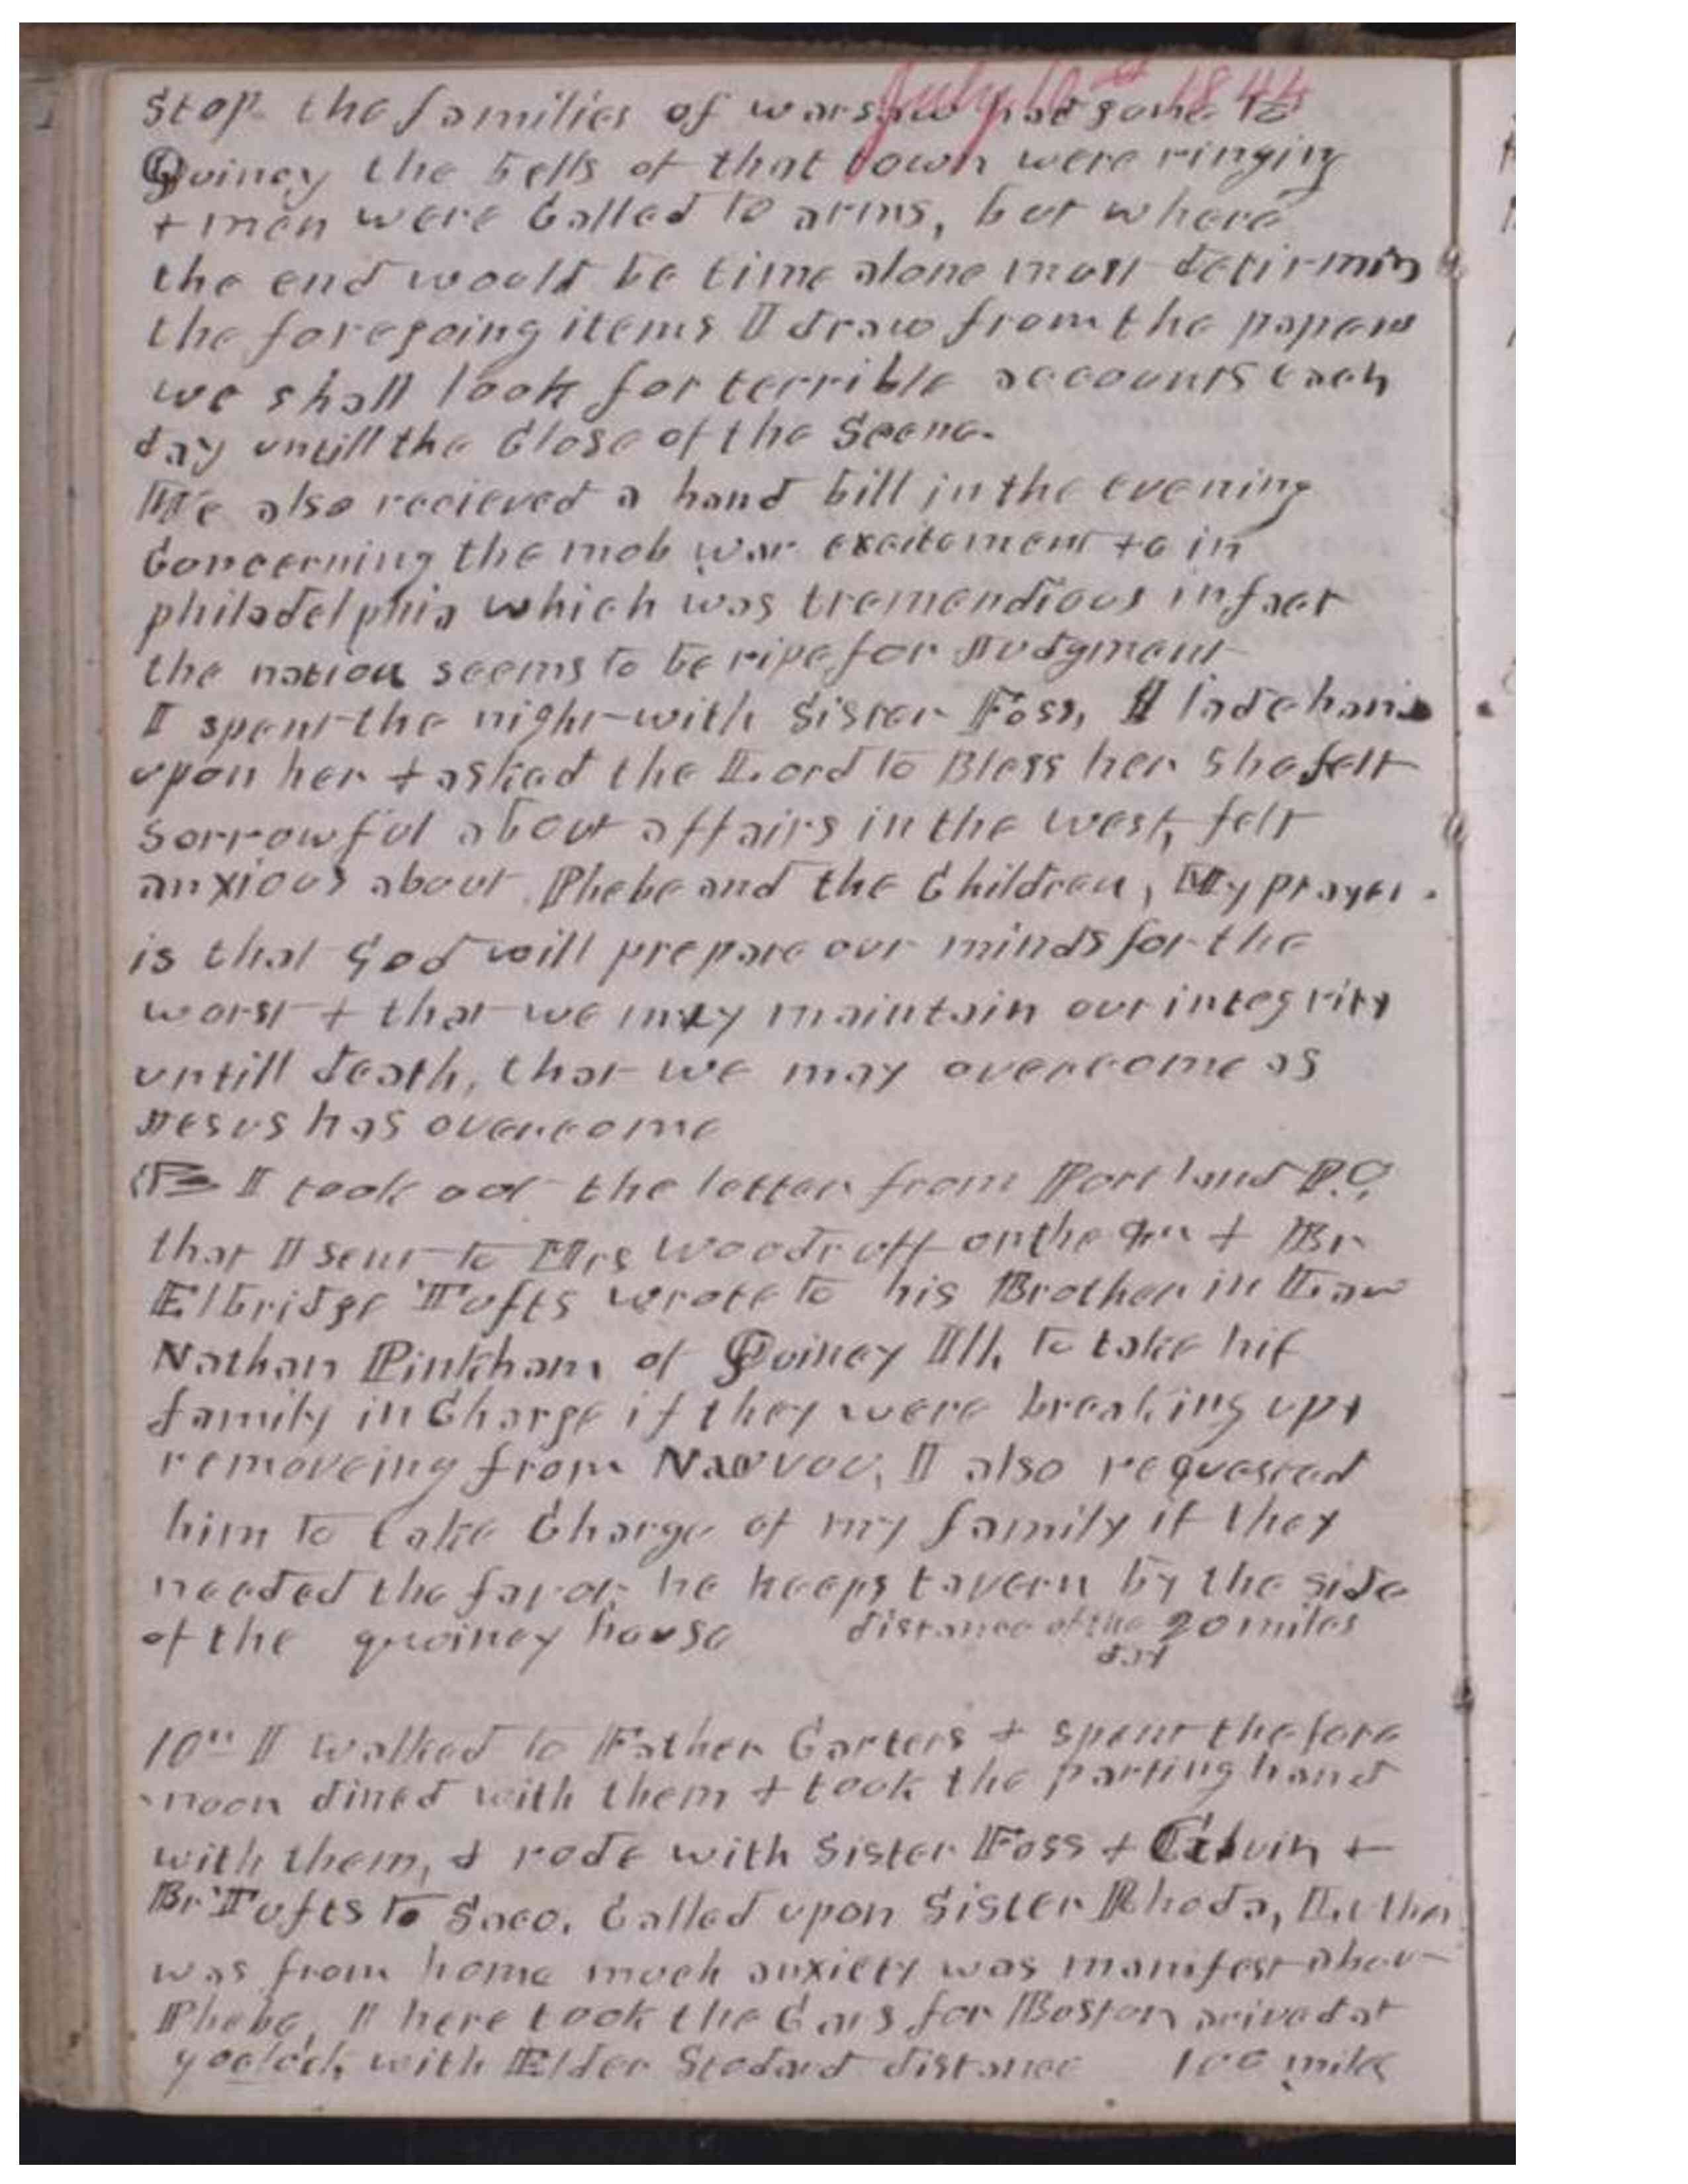 July 10th 1844
Stop the families of warsaw had gone to
Quincy the bells of that town were ringing
+ men were Called to arms, but where
the end would be time alone must detirmin
the foregoing items I draw from the papers
we shall look for terrible accounts each
day untill the Close of the Scene.
We also recieved a hand bill in the evening
Concerning the mob war excitement &c in
philadelphia which was tremendious in fact
the nation seems to be ripe for Judgment
I spent the night with Sister Foss, I lade hands
upon her + asked the Lord to Bless her she felt
Sorrowful about affairs in the west, felt
anxious about Phebe and the Children, My prayer
is that God will prepare our minds for the
worst + that we may maintain our integrity
untill death, that we may overcome as
Jesus has overcome
I took out the letter from Portland P.O.
that I sent to Mrs Woodruff on the 9th + Br
Elbridge Tufts wrote to his Brother in Law
Nathan Pinkham of Quincy Ill, to take his
family in Charge if they were breaking up +
removeing from Nauvoo, I also requested
him to take Charge of my family if they
needed the favor he keeps tavern by the side
of the quincy house distance of the day 20 miles
10th I walked to Father Carters + spent the fore
noon dined with them + took the parting hand
with them, + rode with Sister Foss + Calvin +
Br Tufts to Saco. Called upon Sister Rhoda, Luther
was from home much anxiety was manifest about
Phebe, I here took the Cars for Boston arived at
oclock, with Elder Stodard distance 100 miles